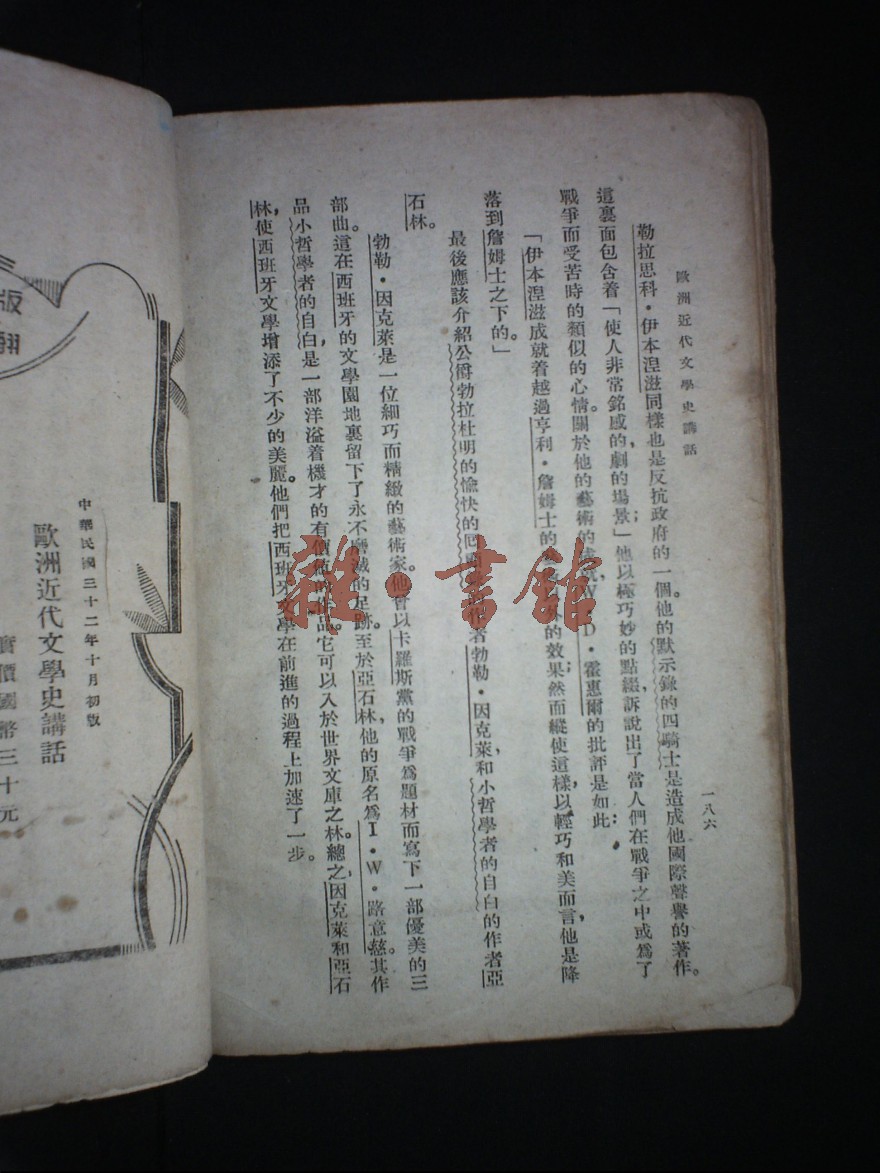 歐洲近代文學史講話
一八六
勒拉思科・伊本涅滋同樣也是反抗政府的一個。他的默示錄的四騎士是造成他國際聲譽的著作。
這裏面包含着「使人非常銘感的劇的場景」；他以極巧妙的點綴，訴說出了當人們在戰爭之中或爲了
戰爭而受苦時的類似的心情。關於他的藝術的成就，W・D・霍惠爾的批評是如此：
「伊本涅滋成就着越過亨利・詹姆士的 的效果；然而縱使這樣，以輕巧和美而言，他是降
落到詹姆士之下的。」
最後應該介紹公爵勃拉杜明的愉快的回 作者勃勒・因克萊，和小哲學者的自白的作者亞
石林。
勃勒・因克萊是一位細巧而精緻的藝術家。他曾以卡羅斯黨的戰爭爲題材而寫下一部優美的三
部曲。這在西班牙的文學園地裏留下了永不磨滅的足跡。至於亞石林，他的原名爲I・W・路意慈。其作
品小哲學者的自白，是一部洋溢着機才的有價值的作品，它可以入於世界文庫之林。總之，因克萊和亞石
林，使西班牙文學增添了不少的美麗。他們把西班牙文學在前進的過程上加速了一步。
版
翻
中華民國三十二年十月初版
歐洲近代文學史講話
實價國幣三十元
雜・書館